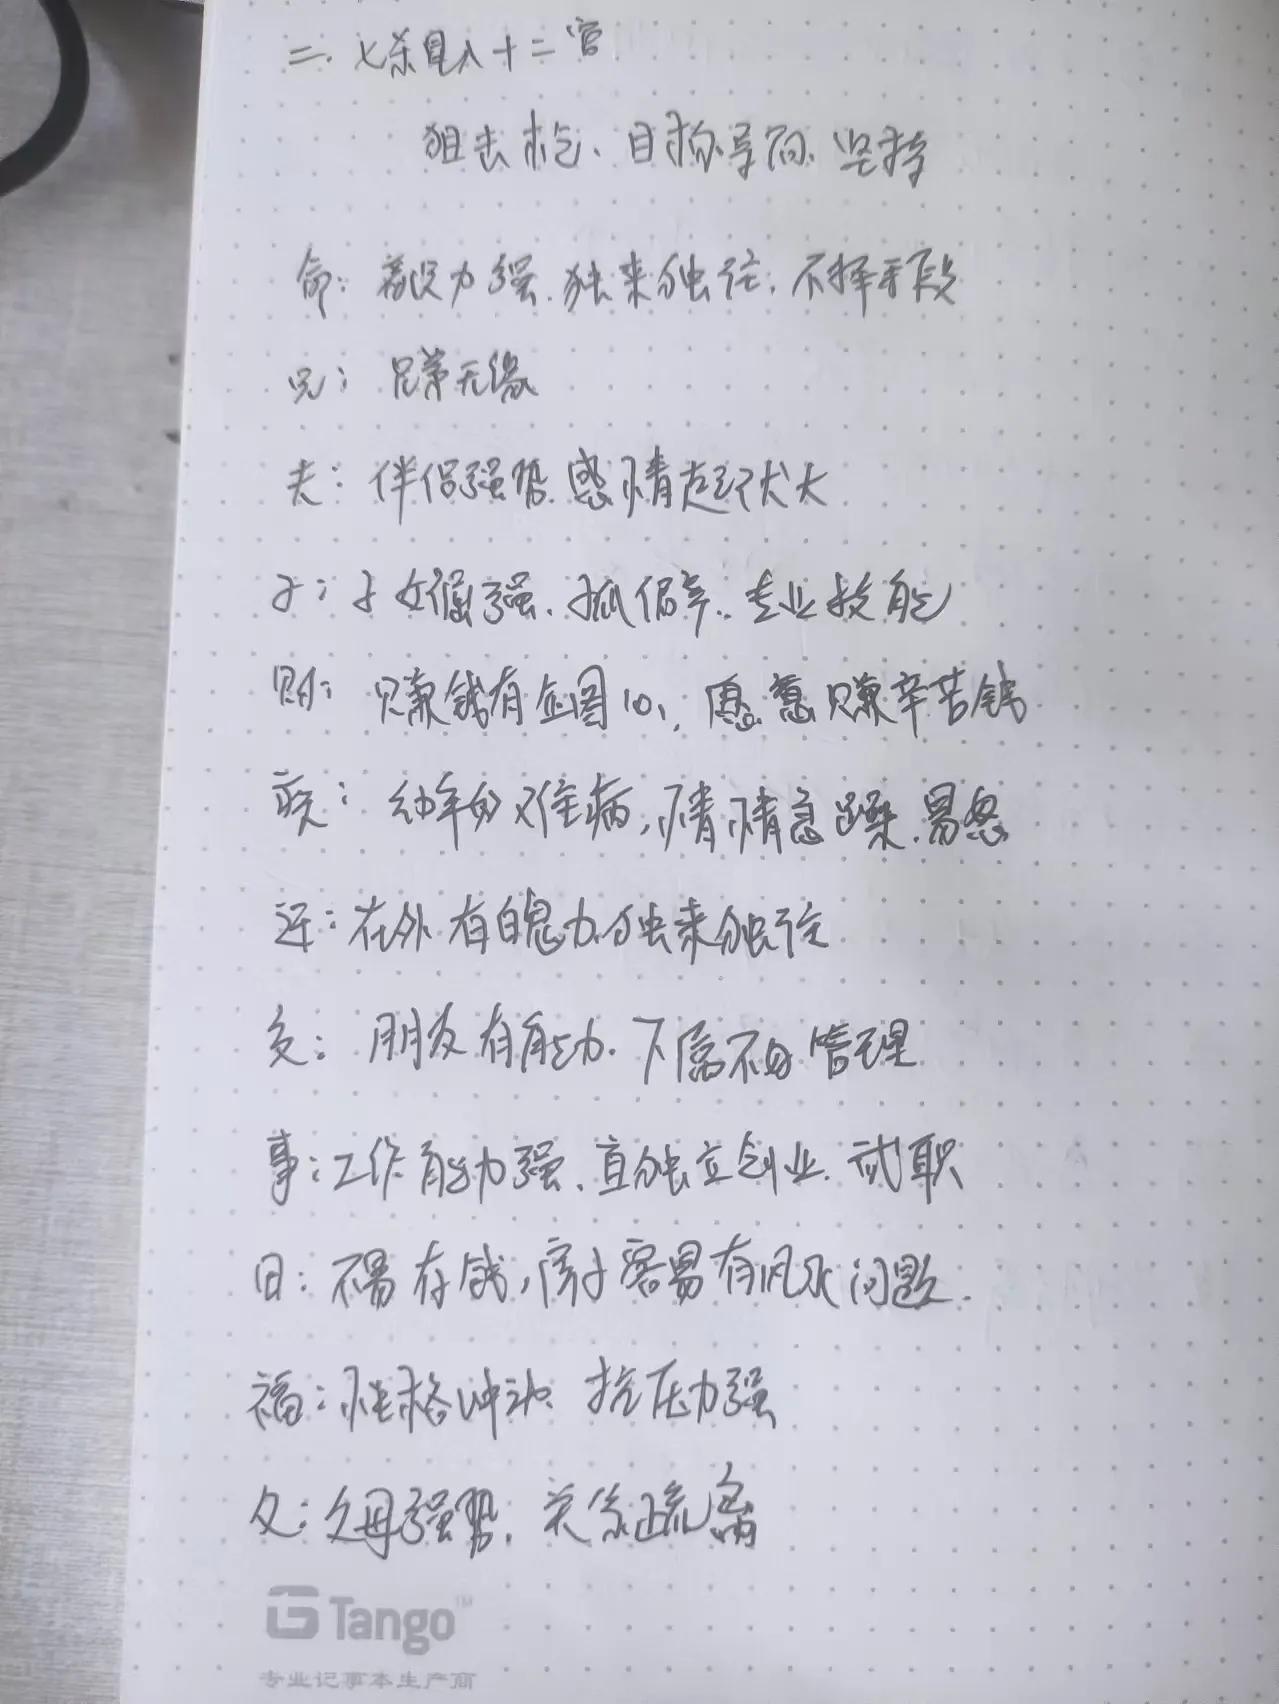 二、七杀星入十二宫
狙击枪、目标导向、坚持
命：毅力强、独来独往、不择手段
兄：兄弟无缘
夫：伴侣强势、感情起伏大
子：子女倔强、孤僻、专业技能
财：赚钱有企图心，愿意赚辛苦钱
疾：幼年身难病，情情急躁、易怒
迁：在外有魄力、独来独往
交：朋友有能力、下属不好管理
事：工作能力强、宜独立创业、武职
田：不易存钱，房子容易有风水问题.
福：性格冲动、抗压力强
父：父母强势、关系疏离
Tango™
专业记事本生产商